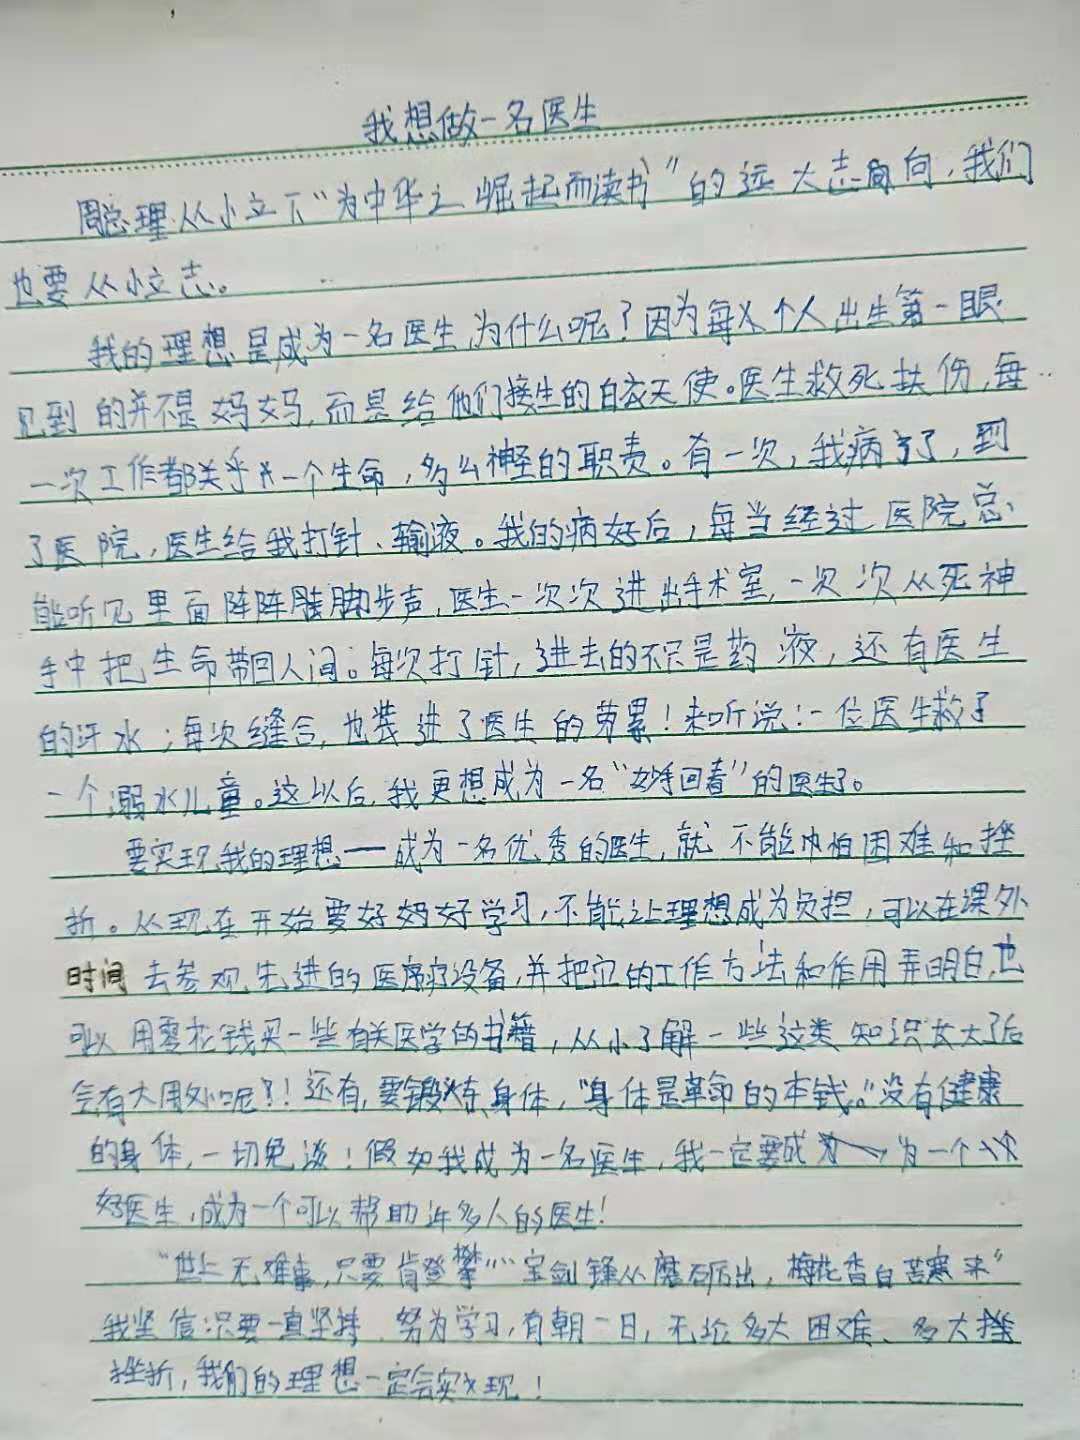 我想做一名医生
周总理从小立下“为中华之崛起而读书”的远大志向，我们
也要从小立志。
我的理想是成为一名医生,为什么呢？因为每个人出生第一眼
见到的并不是妈妈,而是给他们接生的白衣天使。医生救死扶伤,每
一次工作都关乎一个生命，多么神圣的职责。有一次，我病了，到
了医院，医生给我打针、输液。我的病好后，每当经过医院总
能听见里面阵阵脚步声，医生一次次进出手术室，一次次从死神
手中把生命带回人间。每次打针，进去的不只是药液，还有医生
的汗水；每次缝合，也装进了医生的劳累！来听说：一位医生救了
一个溺水儿童。这以后,我更想成为一名“妙手回春”的医生了。
要实现我的理想——成为一名优秀的医生，就不能惧怕困难和挫
折。从现在开始要好好学习，不能让理想成为负担，可以在课外
时间去参观先进的医疗设备，并把它的工作方法和作用弄明白，也
可以用零花钱买一些有关医学的书籍，从小了解一些这类知识长大了后
会有大用处呢？！还有，要锻炼身体，“身体是革命的本钱。”没有健康
的身体，一切免谈！假如我成为一名医生，我一定要成为一个
好医生，成为一个可以帮助许多人的医生！
“世上无难事，只要肯登攀”“宝剑锋从磨砺出，梅花香自苦寒来”
我坚信只要一直坚持、努力学习，有朝一日，无论多大困难、多大
挫折，我们的理想一定会实现！